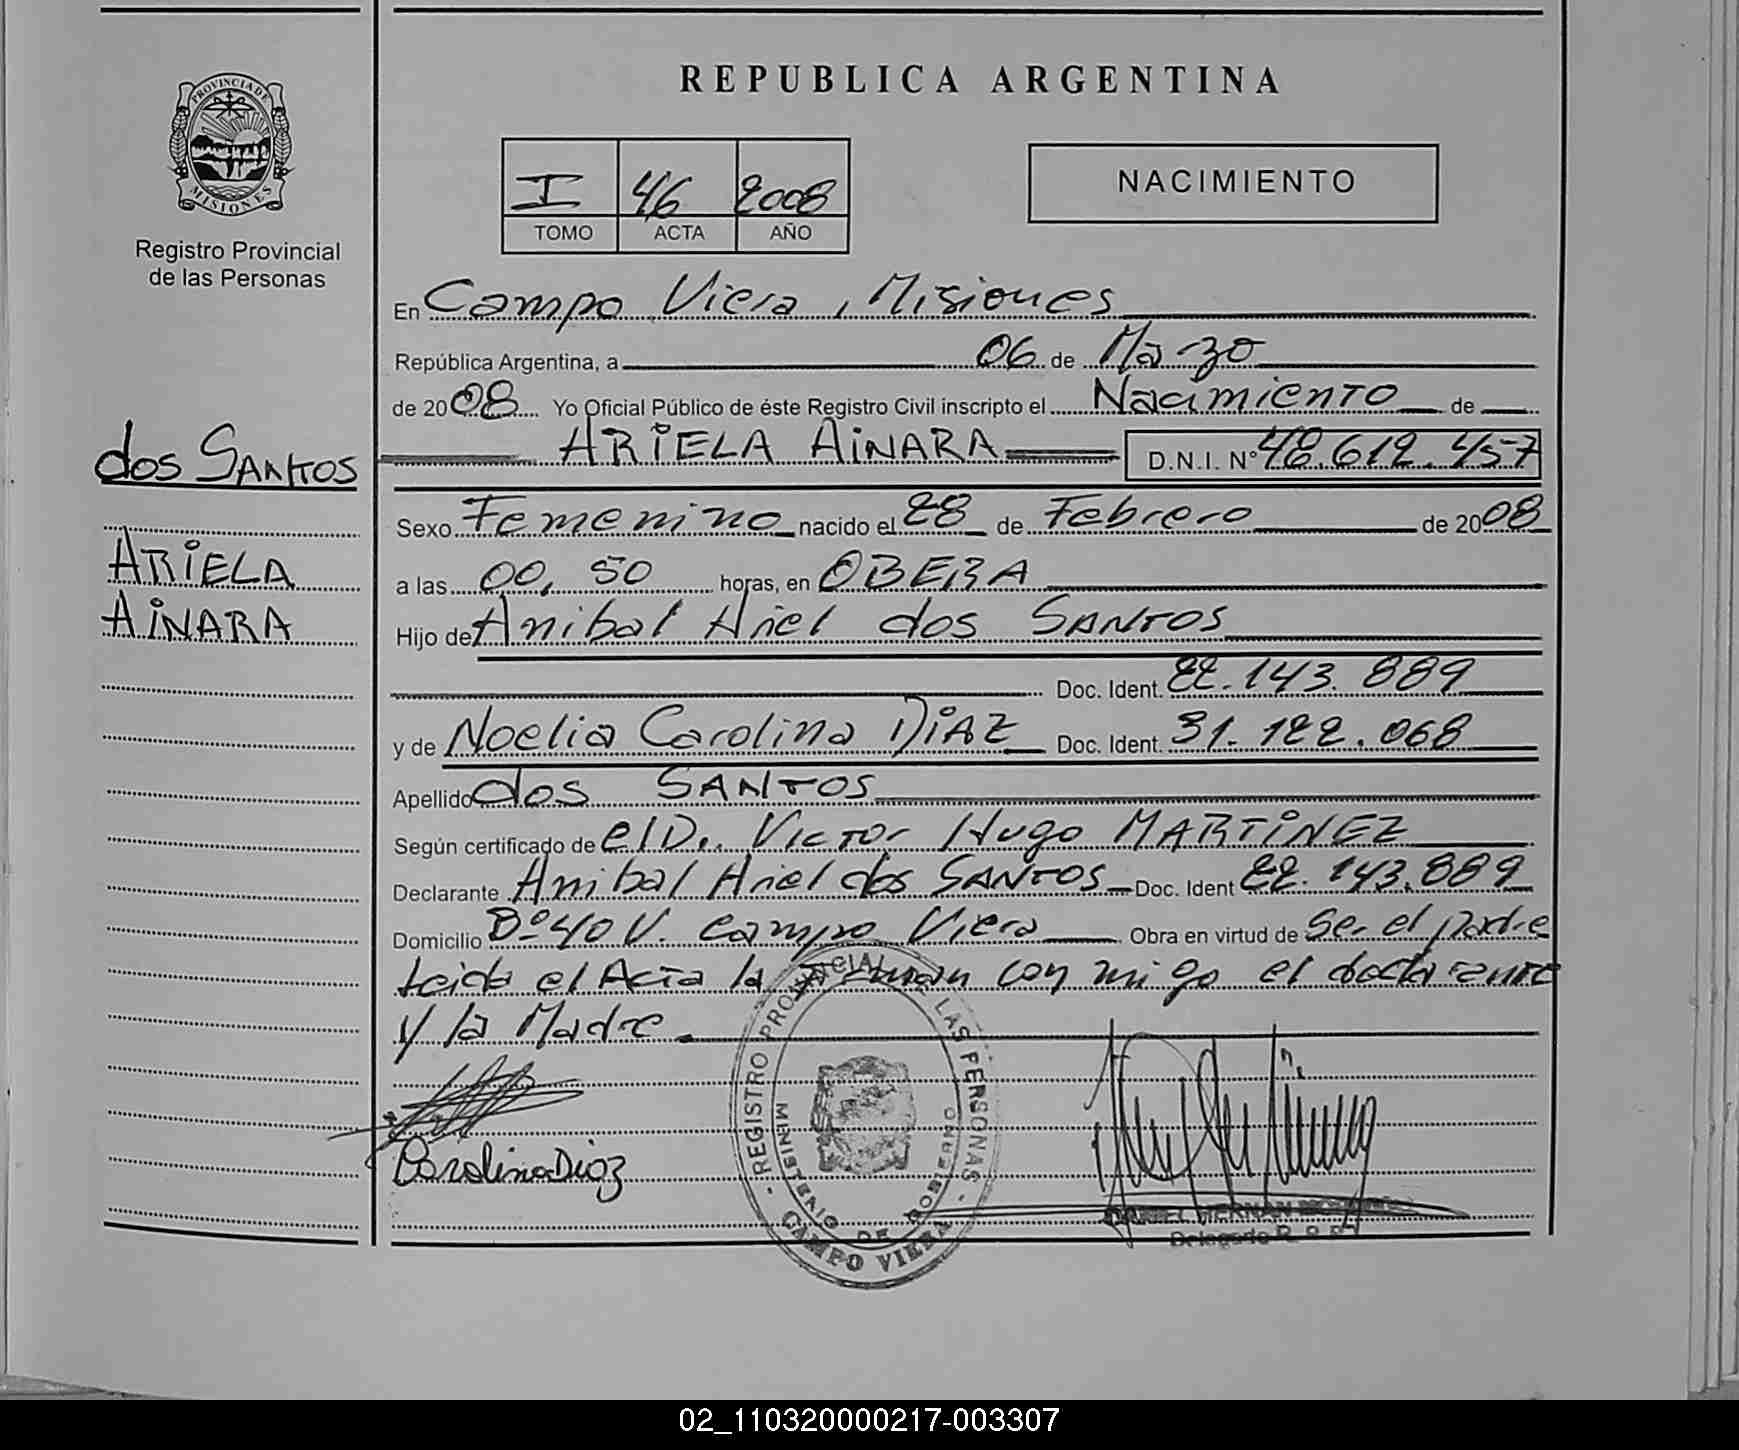 REPUBLICA ARGENTINA
PROVINCIA DE MISIONES
Registro Provincial
de las Personas
I 46 2008
TOMO ACTA AÑO
NACIMIENTO
dos SANTOS
ARiELA
AiNARA
En Campo Viera, Misiones
República Argentina, a 06 de Marzo
de 2008 Yo Oficial Público de éste Registro Civil inscripto el Nacimiento de
ARiELA AiNARA D.N.I. Nº 48.612.457
Sexo Femenino nacido el 28 de Febrero de 2008
a las 00,50 horas, en OBERA
Hijo de Anibal Ariel dos SANTOS
Doc. Ident. 22.143.889
y de Noelia Carolina DiAZ Doc. Ident. 31.122.068
Apellido dos SANTOS
Según certificado de el D.. Victor Hugo MARTiNEZ
Declarante Anibal Ariel dos SANTOS Doc. Ident 22.143.889
Domicilio Bº 40 V. Campo Viera Obra en virtud de Ser el padre
Leida el Acta la Firman con migo el declarante
y la Madre.
Carolina Diaz
REGISTRO PROVINCIAL DE LAS PERSONAS
MINISTERIO DE GOBIERNO
CAMPO VIERA
HERNAN
Delegado R.P.P.
02_110320000217-003307